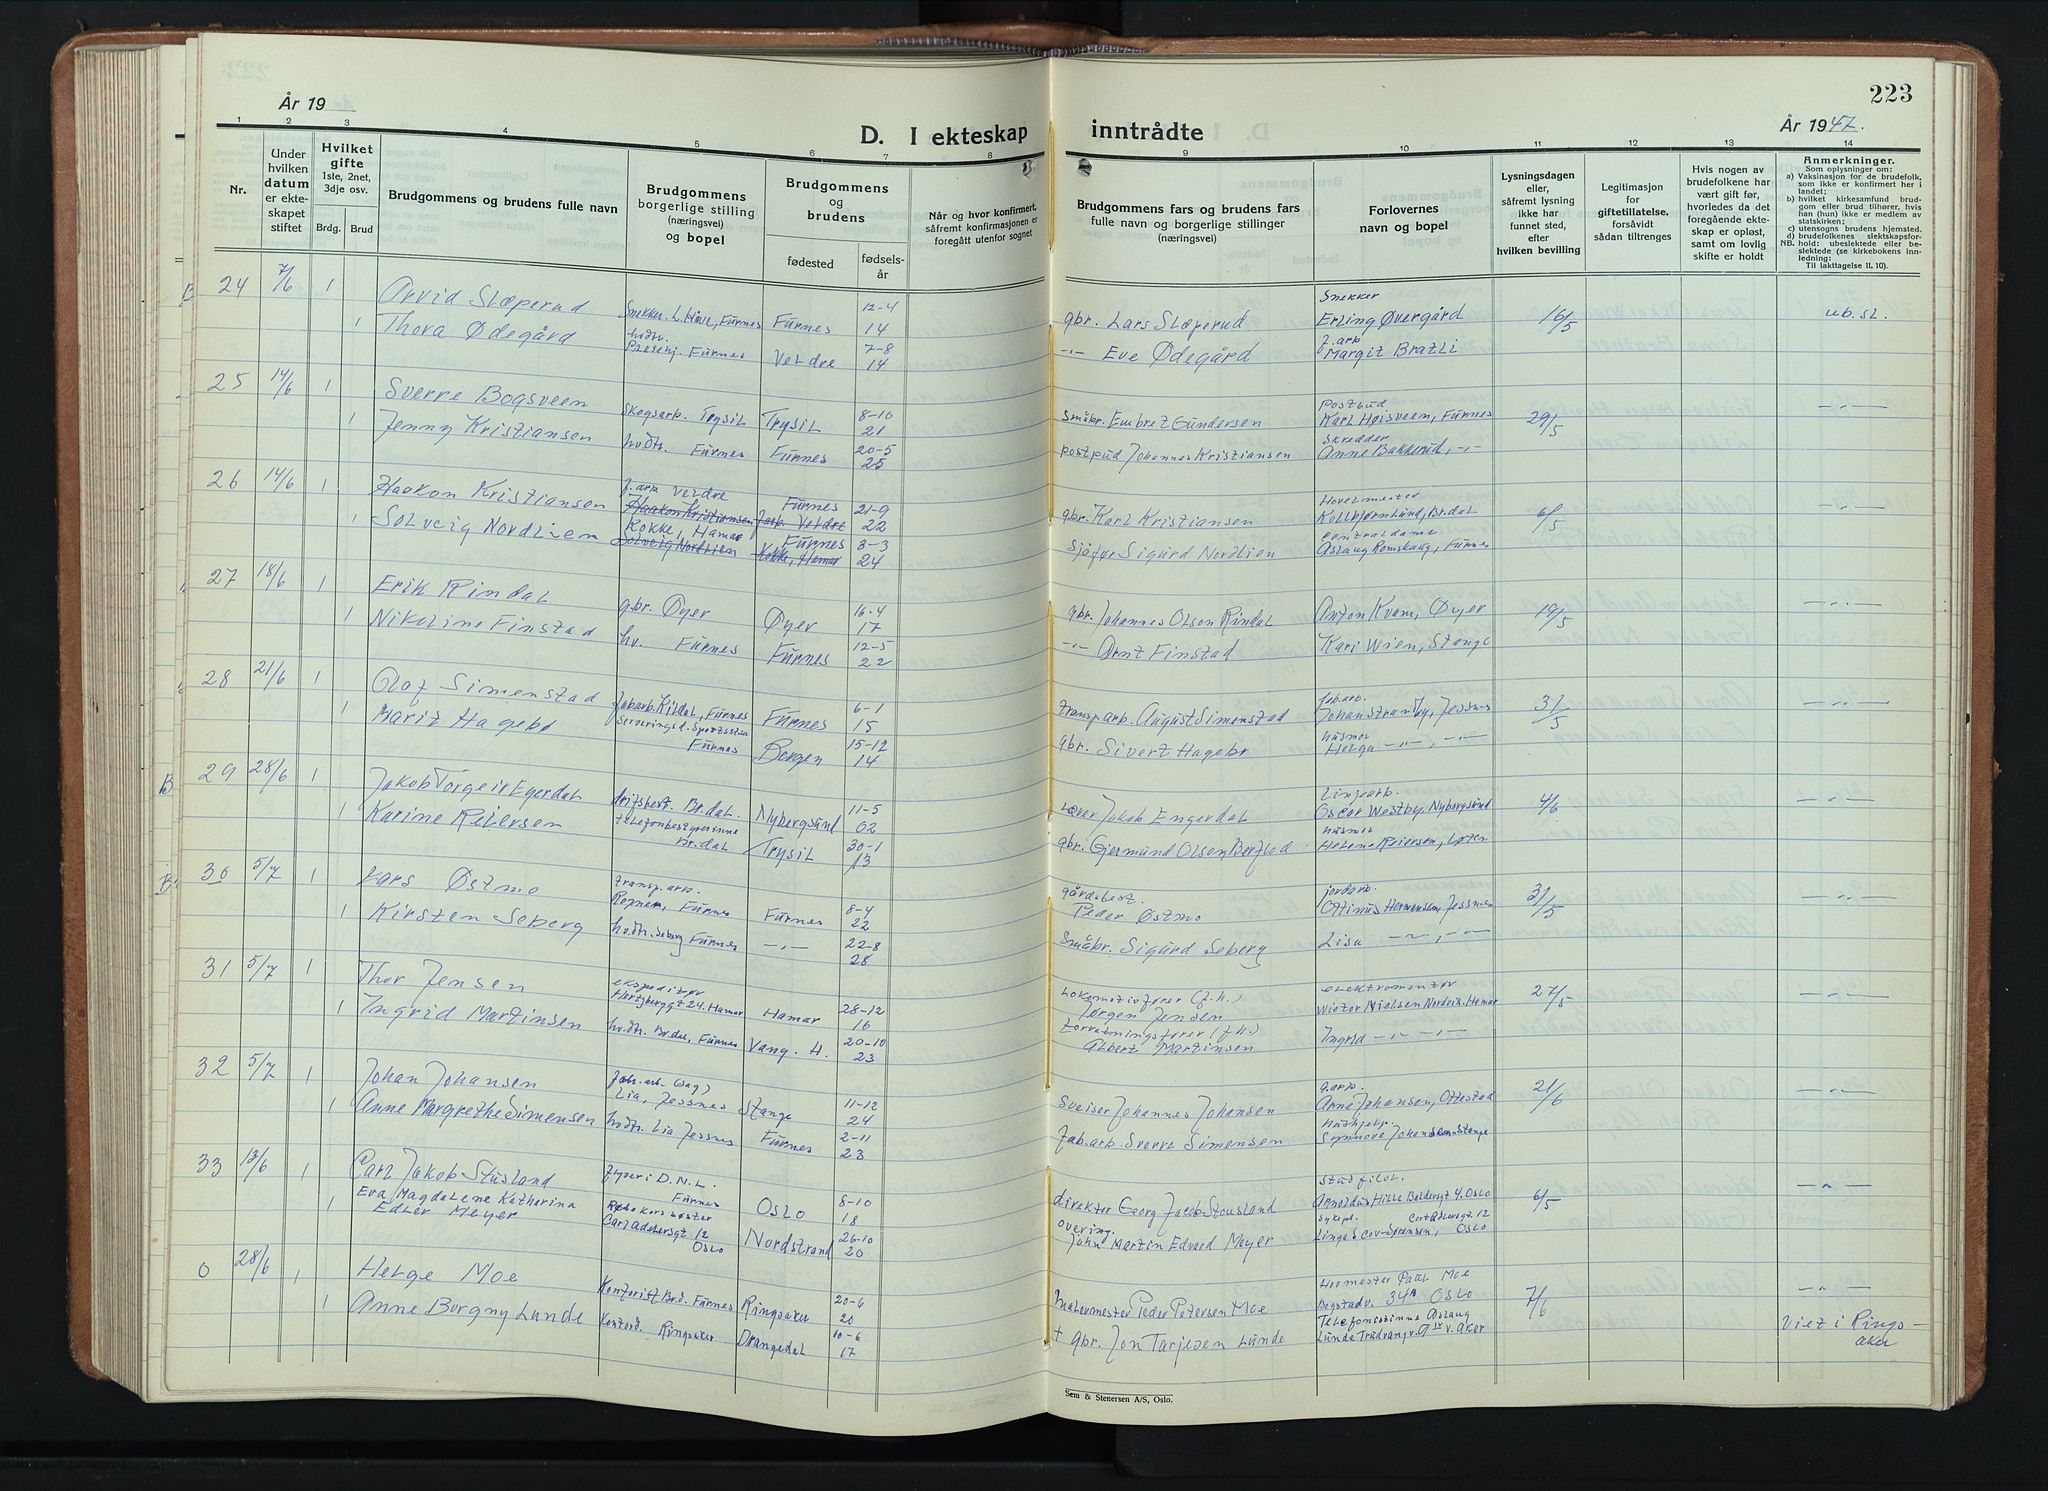 223
År 19
D. I ekteskap inntrådte
År 1947.
1 2 3 4 5 6 7 8 9 10 11 12 13 14
Nr.
Under hvilken datum er ekteskapet stiftet
Hvilket gifte 1ste, 2net, 3dje osv.
Brdg. Brud
Brudgommens og brudens fulle navn
Brudgommens borgerlige stilling (næringsvei) og bopel
Brudgommens og brudens
fødested
fødselsår
Når og hvor konfirmert, såfremt konfirmasjonen er foregått utenfor sognet
Brudgommens fars og brudens fars fulle navn og borgerlige stillinger (næringsvei)
Forlovernes navn og bopel
Lysningsdagen eller, såfremt lysning ikke har funnet sted, efter hvilken bevilling
Legitimasjon for giftetillatelse, forsåvidt sådan tiltrenges
Hvis nogen av brudefolkene har vært gift før, hvorledes da det foregående ekteskap er opløst, samt om lovlig skifte er holdt
Anmerkninger.
Som oplysninger om:
a) Vaksinasjon for de brudefolk, som ikke er konfirmert her i landet;
b) hvilket kirkesamfund brudgom eller brud tilhører, hvis han (hun) ikke er medlem av statskirken;
c) utensogns brudens hjemsted.
d) brudefolkenes slektskapsforhold: ubeslektede eller beslektede (se kirkebokens innledning:
NB. Til iakttagelse II. 10).
B 24 7/6 1 Arvid Slæperud Snekker. L. Hove, Furnes Furnes 12-4 14 gbr. Lars Slæperud Snekker Erling Øvergård 16/5 ub. sl.
1 Thora Ødegård hvdtr. Furnes Veldre 7-8 14 -"- Eve Ødegård f.arb Margit Bratli
25 14/6 1 Sverre Bogsveen Skogsarb. Trysil Trysil 8-10 21 småbr. Embret Gundersen Postbud Karl Høisveen, Furnes 29/5 -"-
1 Jenny Kristiansen hvdtr. Furnes Furnes 20-5 25 postbud Johannes Kristiansen Skredder Anne Bakkerud, -"-
26 14/6 1 Haakon Kristiansen f.arb Veldre Haakon Kristiansen Furnes f.arb. Veldre 21-9 22 gbr. Karl Kristiansen Hovelmester Kollbjørn Lund, Br.dal 6/5 -"-
1 Solveig Nordlien Kokke, Hamar Solveig Nordlien Furnes Kokke, Hamar 3-3 24 Sjåfør Sigurd Nordlien Centraldame Aslaug Romskaug, Furnes
27 18/6 1 Erik Rindal gbr. Øyer Øyer 16-4 17 gbr. Johannes Olson Rindal Anton Kvam, Øyer 19/5 -"-
1 Nikoline Finstad hv. Furnes Furnes 12-5 22 -"- Arnt Finstad Kari Wien, Stange
28 21/6 1 Olaf Simenstad fabarb. Kildal, Furnes Furnes 6-1 15 transp.arb. August Simenstad fab.arb. Johan Strandby, Jessnes 31/5 -"-
1 Marit Hagebø Serveringsd. Furnes Bergen 15-12 14 gbr. Sivert Hagebø husmor Helga -"-, -"-
B 29 28/6 1 Jakob Torgeir Egerdal driftsbest. Br.dal. Nybergsund 11-5 02 Lærer Jakob Engerdal Linjearb. Oscar Westby, Nybergsund 4/6 -"-
1 Karine Reiersen telefonbestyrerinne Br.dal Trysil 30-1 13 gbr. Gjermund Olson Berflod husmor Helene Reiersen, Løten
B 30 5/7 1 Lars Østmo transp.arb. Furnes Furnes 8-4 22 gårdsbest. Peder Østmo jordarb. Ottinus Hermansen, Jessnes 31/5 -"-
1 Kirsten Seberg hvdtr. Seberg Furnes -"- 22-8 28 Småbr. Sigurd Seberg Lisa -"-, -"-
31 5/7 1 Thor Jensen ekspeditør Hertzberggt 24. Hamar Hamar 28-12 16 Lokomotivfører (f.h.) Jørgen Jensen elektromontør Wictor Nielsen Nordvik. Hamar 27/5 -"-
1 Ingrid Martinsen hvdtr. Br.dal, Furnes Vang. H. 20-10 23 forretningsfører (f.h.) Albert Martinsen Ingrid -"- -"-
32 5/7 1 Johan Johansen fabr.arb. (sag) Lia, Jessnes Stange 11-12 24 Sveiser Johannes Johansen g.arb. Arne Johansen, Ottestad 21/6 -"-
1 Anne Margrethe Simensen hvdtr. Lia Jessnes Furnes 2-11 23 fab.arb. Sverre Simensen Hushjelp Synnøve Johansen Stange
33 13/6 1 Carl Jakob Stusland flyver i D.N.L. Furnes Oslo 8-10 18 direktør Georg Jacob Stousland Stud filol. Arnoldus Hille Baldersgt 4. Oslo 6/5 -"-
1 Eva Magdalene Katharina Edler Meyer Røde kors søster Carl Adlersgt 12 Oslo Nordstrand 26-10 20 overing. John Martin Edvard Meyer Sykepl. Cort Adlersgt. 12 Oslo
0 28/6 1 Helge Moe Kontorist Br.d. Furnes Ringsaker 20-6 20 Malermester Peder Petersen Moe Hovmester Paul Moe Bogstadv. 34A Oslo 7/6 -"-
1 Anne Borgny Lunde Kontord. Ringsaker Drangedal 10-6 17 + gbr. Jon Tarjesen Lunde Telefonistinne Aslaug Lunde v. Aker Viet i Ringsaker
Sem & Stenersen A/S, Oslo.